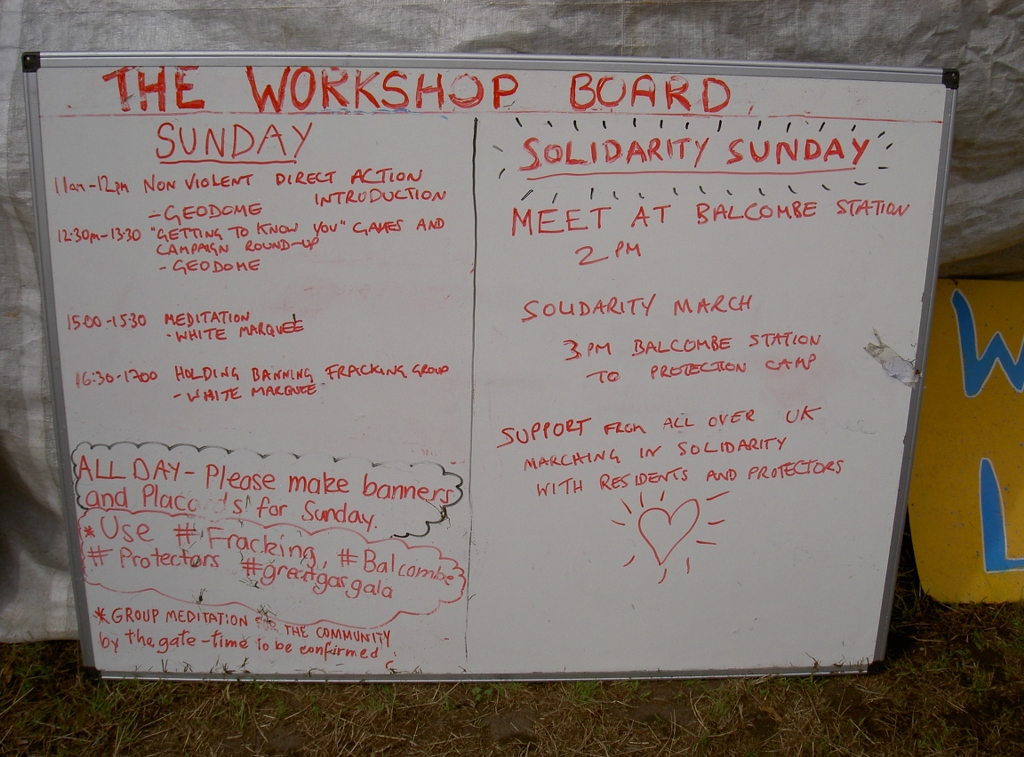 THE WORKSHOP BOARD
SUNDAY
11am-12pm NON VIOLENT DIRECT ACTION
INTRODUCTION
- GEODOME
12:30pm-13:30 "GETTING TO KNOW YOU" GAMES AND
CAMPAIGN ROUND-UP
- GEODOME
15:00-15:30 MEDITATION
- WHITE MARQUEE
16:30-1700 HOLDING BANNING FRACKING GROUP
- WHITE MARQUEE
ALL DAY - Please make banners
and Placards for Sunday.
* Use # Fracking, # Balcombe
# Protectors #greatgasgala
* GROUP MEDITATION FOR THE COMMUNITY
by the gate - time to be confirmed
SOLIDARITY SUNDAY
MEET AT BALCOMBE STATION
2 PM
SOLIDARITY MARCH
3PM BALCOMBE STATION
TO PROTECTION CAMP
SUPPORT FROM ALL OVER UK
MARCHING IN SOLIDARITY
WITH RESIDENTS AND PROTECTORS
W
L